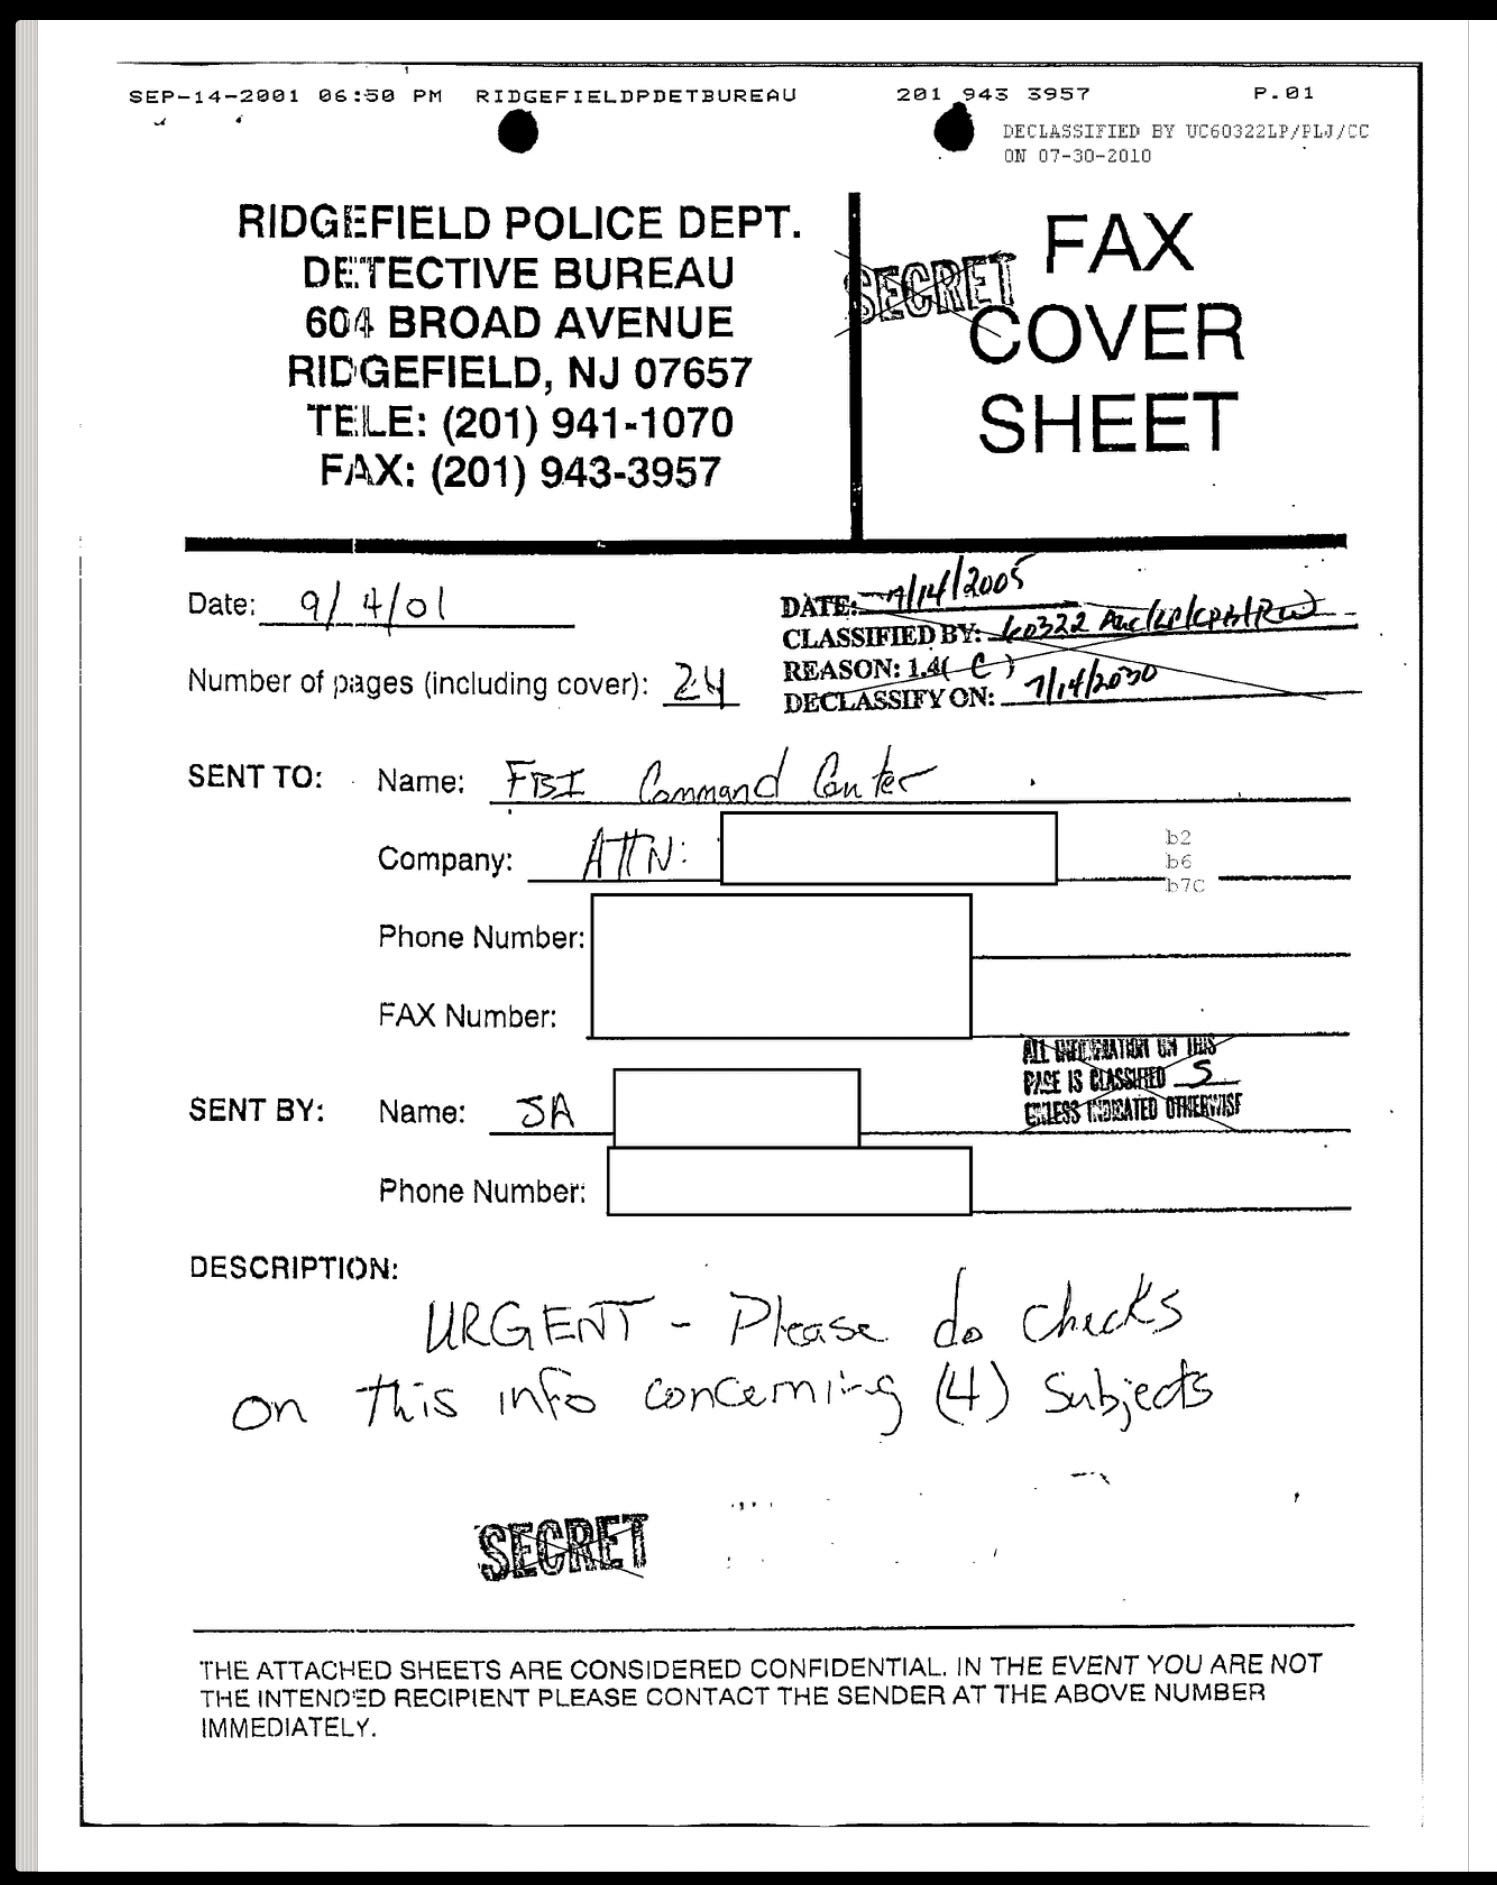 SEP-14-2001 06:50 PM RIDGEFIELDPDETBUREAU 201 943 3957 P.01
DECLASSIFIED BY UC60322LP/PLJ/CC
ON 07-30-2010
RIDGEFIELD POLICE DEPT.
DETECTIVE BUREAU
604 BROAD AVENUE
RIDGEFIELD, NJ 07657
TELE: (201) 941-1070
FAX: (201) 943-3957
SECRET
FAX
COVER
SHEET
Date: 9/4/01
DATE: 7/14/2005
CLASSIFIED BY: 60322
REASON: 1.4( C )
DECLASSIFY ON: 7/14/2030
Number of pages (including cover): 24
SENT TO: Name: FBI Command Center
Company: ATTN:
b2
b6
b7C
Phone Number:
FAX Number:
ALL INFORMATION ON THIS
PAGE IS CLASSIFIED S
UNLESS INDICATED OTHERWISE
SENT BY: Name: SA
Phone Number:
DESCRIPTION:
URGENT - Please do checks
on this info concerning (4) Subjects
SECRET
THE ATTACHED SHEETS ARE CONSIDERED CONFIDENTIAL. IN THE EVENT YOU ARE NOT
THE INTENDED RECIPIENT PLEASE CONTACT THE SENDER AT THE ABOVE NUMBER
IMMEDIATELY.